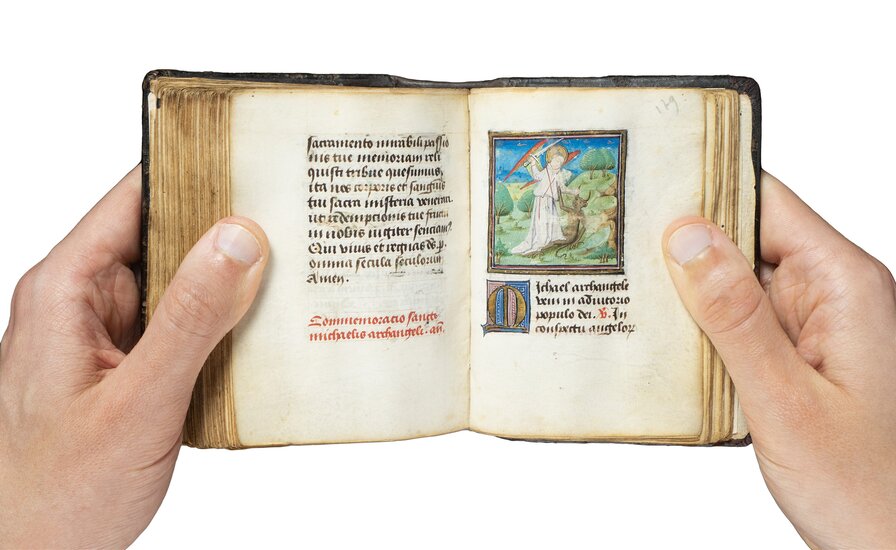 sacramento mirabili passio
nis tue memoriam reli
quisti tribue quesumus,
ita nos corporis et sanguis
tui sacra misteria venerari
ut redemptionis tue fructū
in nobis iugiter senciam⁹
Qui vivus et regnas ds. p.
omnia secula seculorum
Amen.
Commemoracio sancti
michaelis archangeli. añ.
129
Michael archangele
veni in adiutorio
populo dei. V. In
conspectu angelor